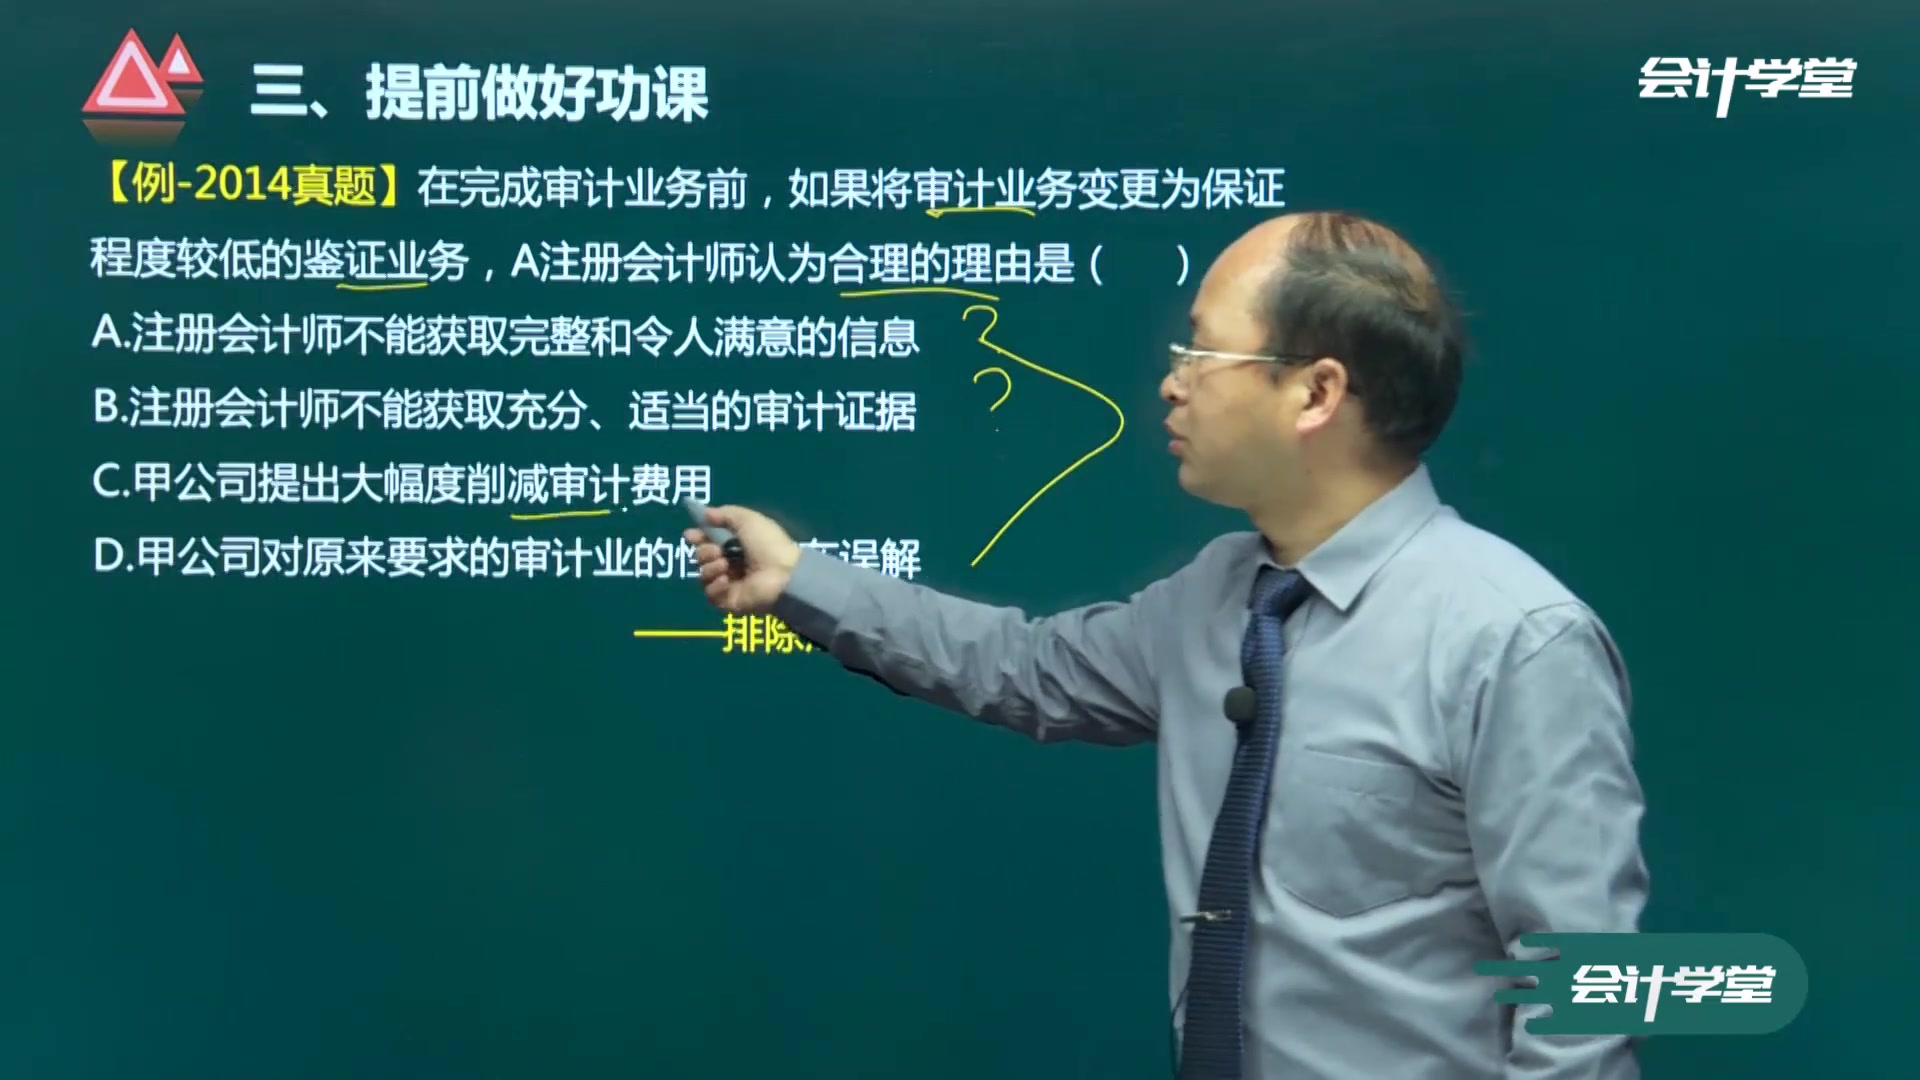 三、提前做好功课
会计学堂
【例-2014真题】在完成审计业务前，如果将审计业务变更为保证
程度较低的鉴证业务，A注册会计师认为合理的理由是（ ）
A.注册会计师不能获取完整和令人满意的信息
B.注册会计师不能获取充分、适当的审计证据
C.甲公司提出大幅度削减审计费用
D.甲公司对原来要求的审计业的 误解
——排除
会计学堂